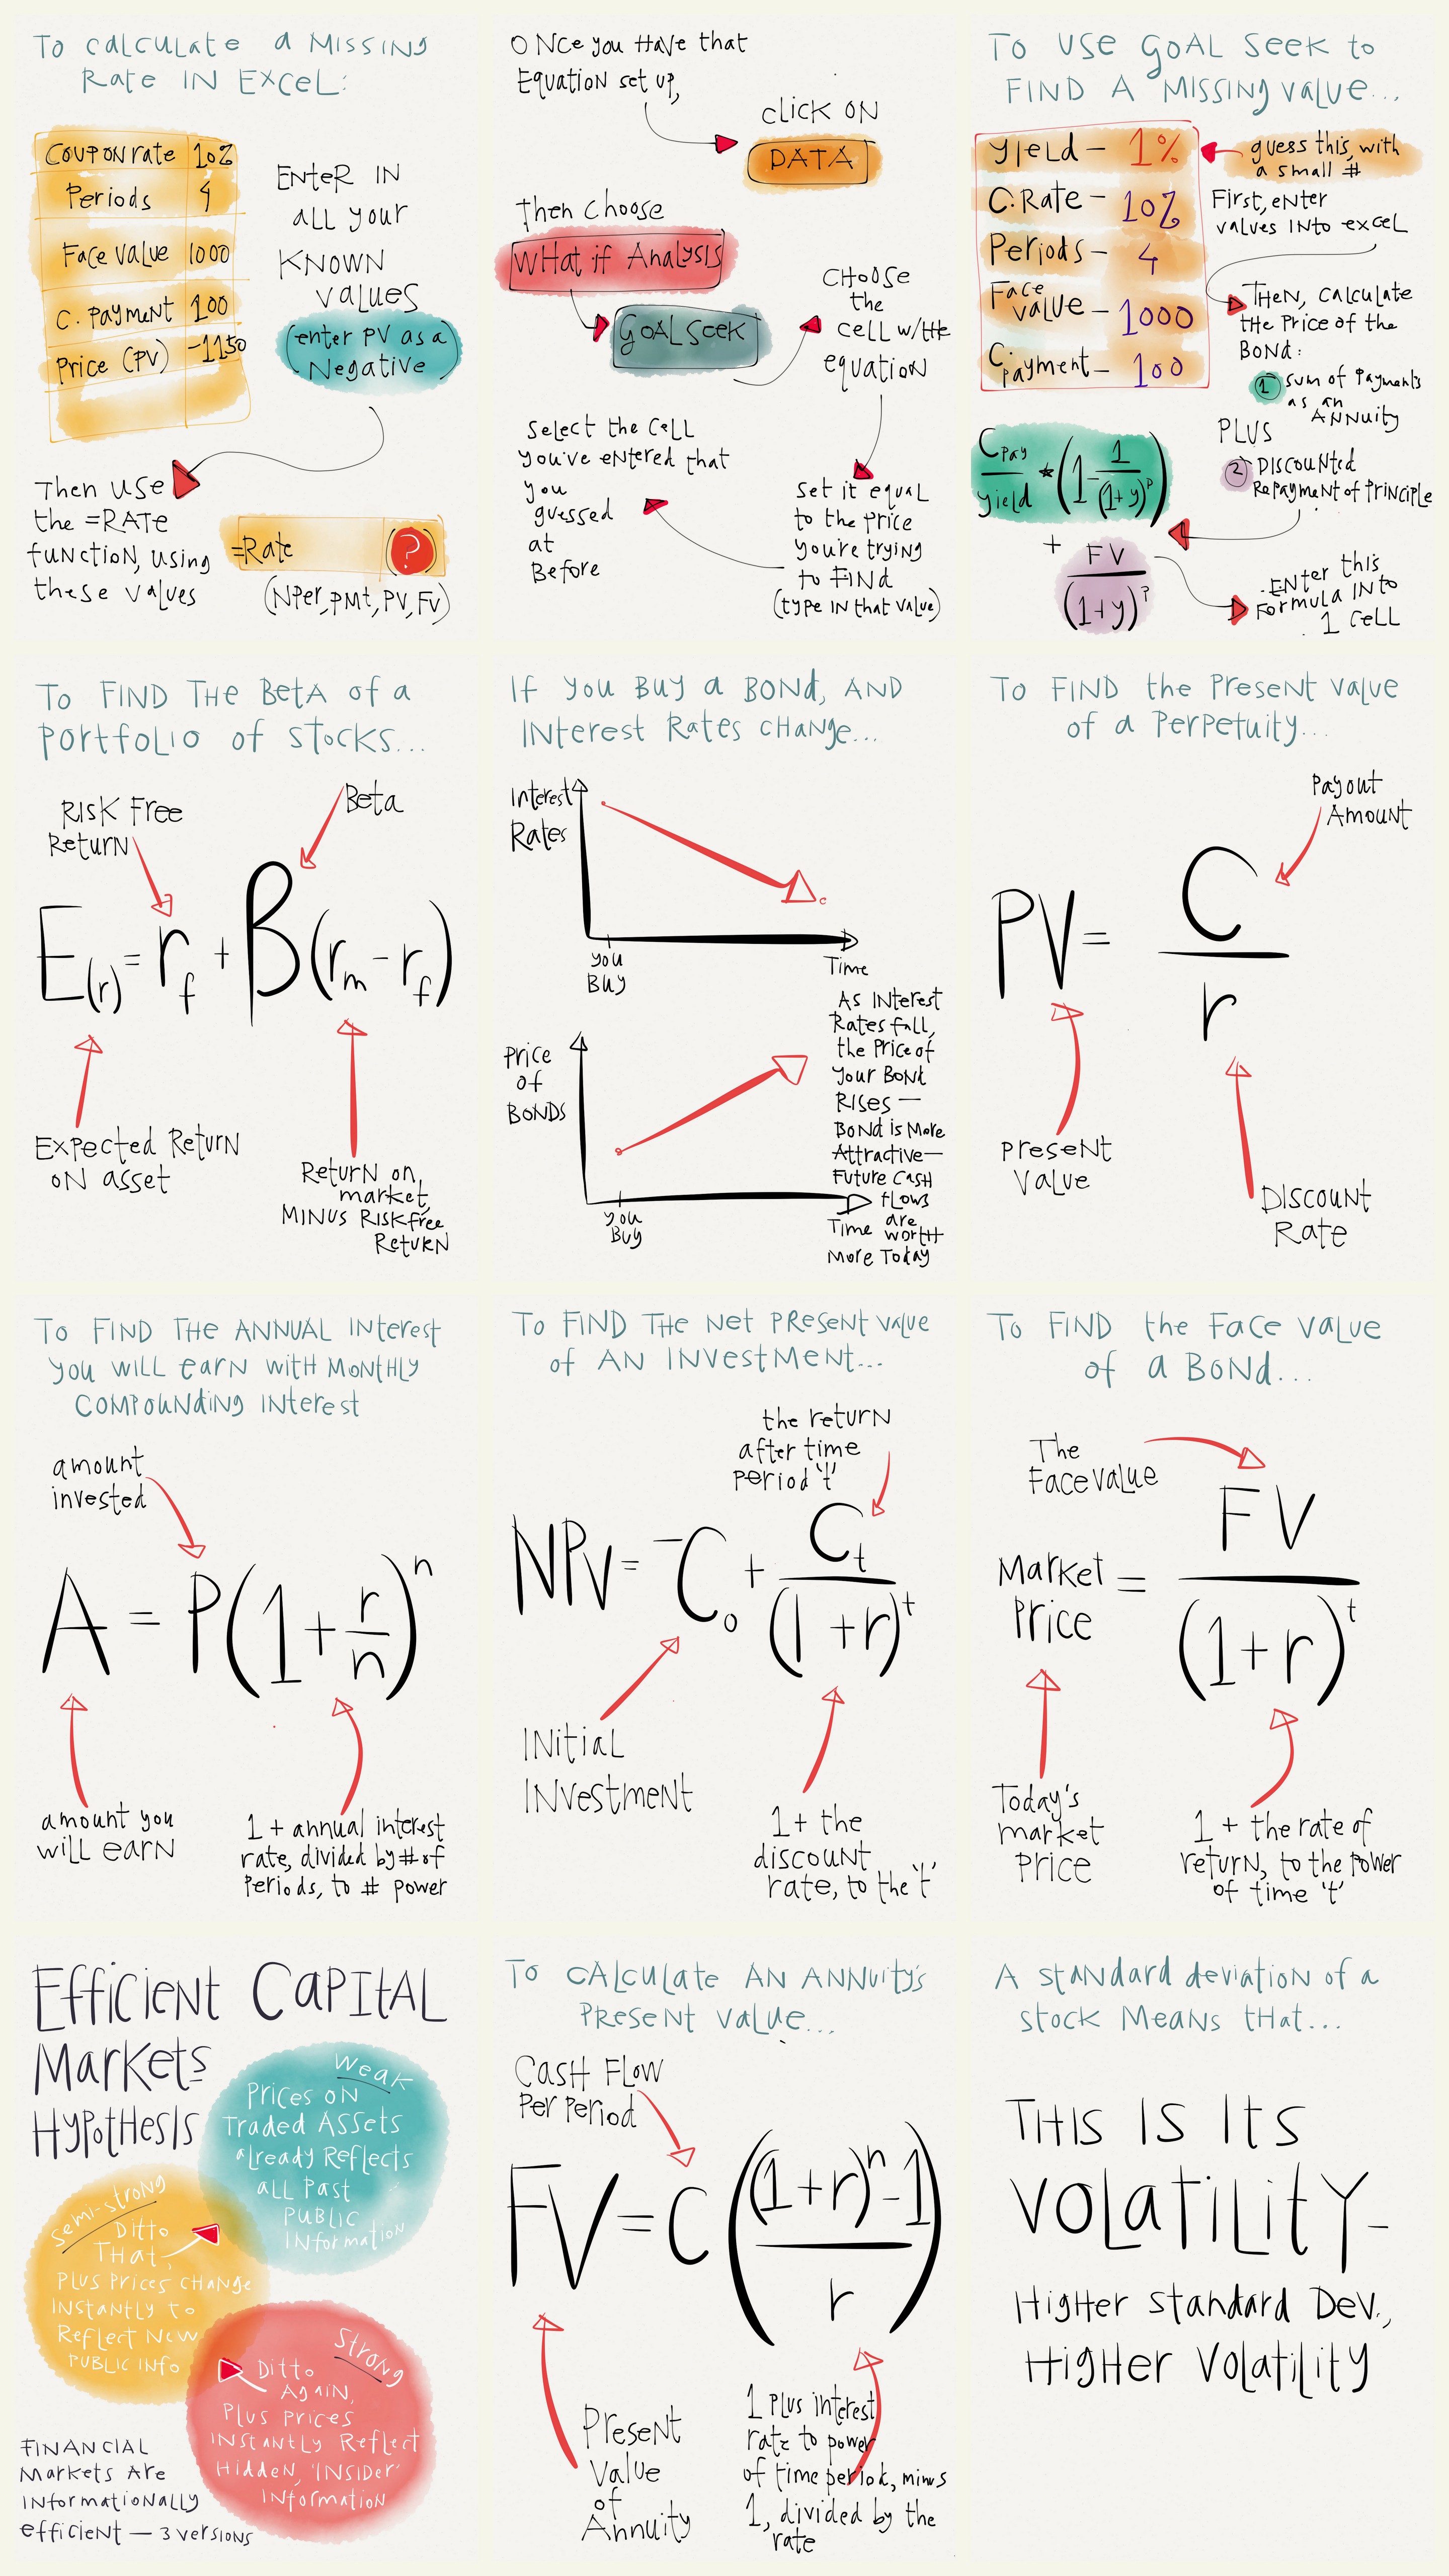 To CALCULATE a MISSING
Rate IN EXCEL:
COUPON rate 10%
Periods 4
Face Value 1000
C. Payment 100
Price (PV) -1150
ENTER IN
all your
KNOWN
values
(enter PV as a
Negative)
Then USE
the =RATE
function, using
these values
=Rate (?)
(NPer, PMt, PV, FV)
ONce you Have that
Equation set up,
click ON
DATA
then choose
WHat if Analysis
GOAL SEEK
CHOOSE
the
cell w/the
equation
Set it equal
to the price
you're trying
to FIND
(type IN that value)
Select the cell
you've entered that
you
guessed
at
Before
To USE GOAL SEEK to
FIND A MISSING VALUE...
Yield - 1%
C. Rate - 10%
Periods - 4
Face
value - 1000
C.
Payment - 100
guess this, with
a small #
First, enter
values INto excel
THEN, CALCULATE
the Price of the
BOND:
1 Sum of Payments
as an
ANNuity
PLUS
2 DISCOUNted
Repayment of Principle
CPay/yield * (1 - 1/(1+y)^P)
+ FV/(1+y)^P
ENter this
Formula INto
1 cell
To FIND THE BetA of a
Portfolio of Stocks...
RISK Free
Return
Beta
E(r) = rf + B(rm - rf)
Expected Return
ON asset
Return on
market,
MINUS RISK free
Return
If you BUY a BOND, AND
INterest Rates CHANge...
Interest
Rates
you
Buy
Time
Price
of
BONDS
you
Buy
Time
As INterest
Rates fall,
the Price of
Your BONd
RISES —
BONd is More
Attractive—
Future CASH
flows
are
worth
More Today
To FIND the Present Value
of a Perpetuity...
Payout
Amount
PV = C/r
Present
Value
DISCOUNT
Rate
To FIND THE ANNUAL INterest
you will earn witH MONtHLY
COMPOUNdiNg INterest
amount
invested
A = P(1 + r/n)^n
amount you
will earn
1 + annual interest
rate, divided by # of
Periods, to # power
To FIND THE Net PReseNt value
of AN INvestMeNt...
the return
after time
Period 't'
NPV = -C0 + Ct/(1+r)^t
INitial
INvestment
1+ the
discount
rate, to the 't'
To FIND the Face Value
of a BONd...
The
Face value
Market
Price = FV/(1+r)^t
Today's
market
Price
1 + the rate of
return, to the power
of time 't'
Efficient CAPItAL
Markets
HYPothesis
Weak
Prices ON
Traded Assets
already Reflects
all Past
Public
INformation
Semi-strong
Ditto
THAt,
PLUS Prices CHANge
INstANtly to
Reflect New
PUBLIC INfo
Strong
Ditto
AgAIN,
PLUS Prices
INstANtly Reflect
Hidden, 'INsider'
INformatioN
FINANCIAL
Markets Are
INformationally
efficient — 3 versions
To CALculate AN ANNuity's
PReseNt Value...
CASH FLOW
Per Period
FV = C(((1+r)^n - 1)/r)
Present
Value
of
Annuity
1 Plus interest
rate to power
of time period, minus
1, divided by the
rate
A standard deviation of a
stock Means tHat...
THIS IS Its
VOLAtiLitY-
HigHer Standard Dev.,
HigHer Volatility